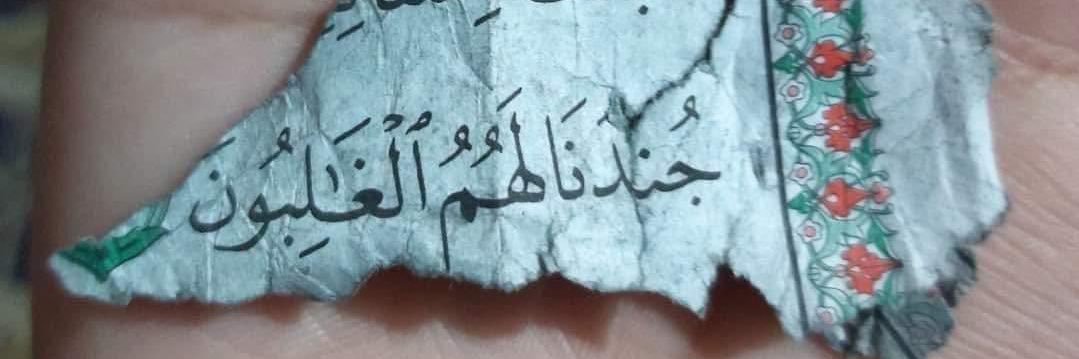 جُندَنَا لَهُمُ ٱلْغَـٰلِبُونَ